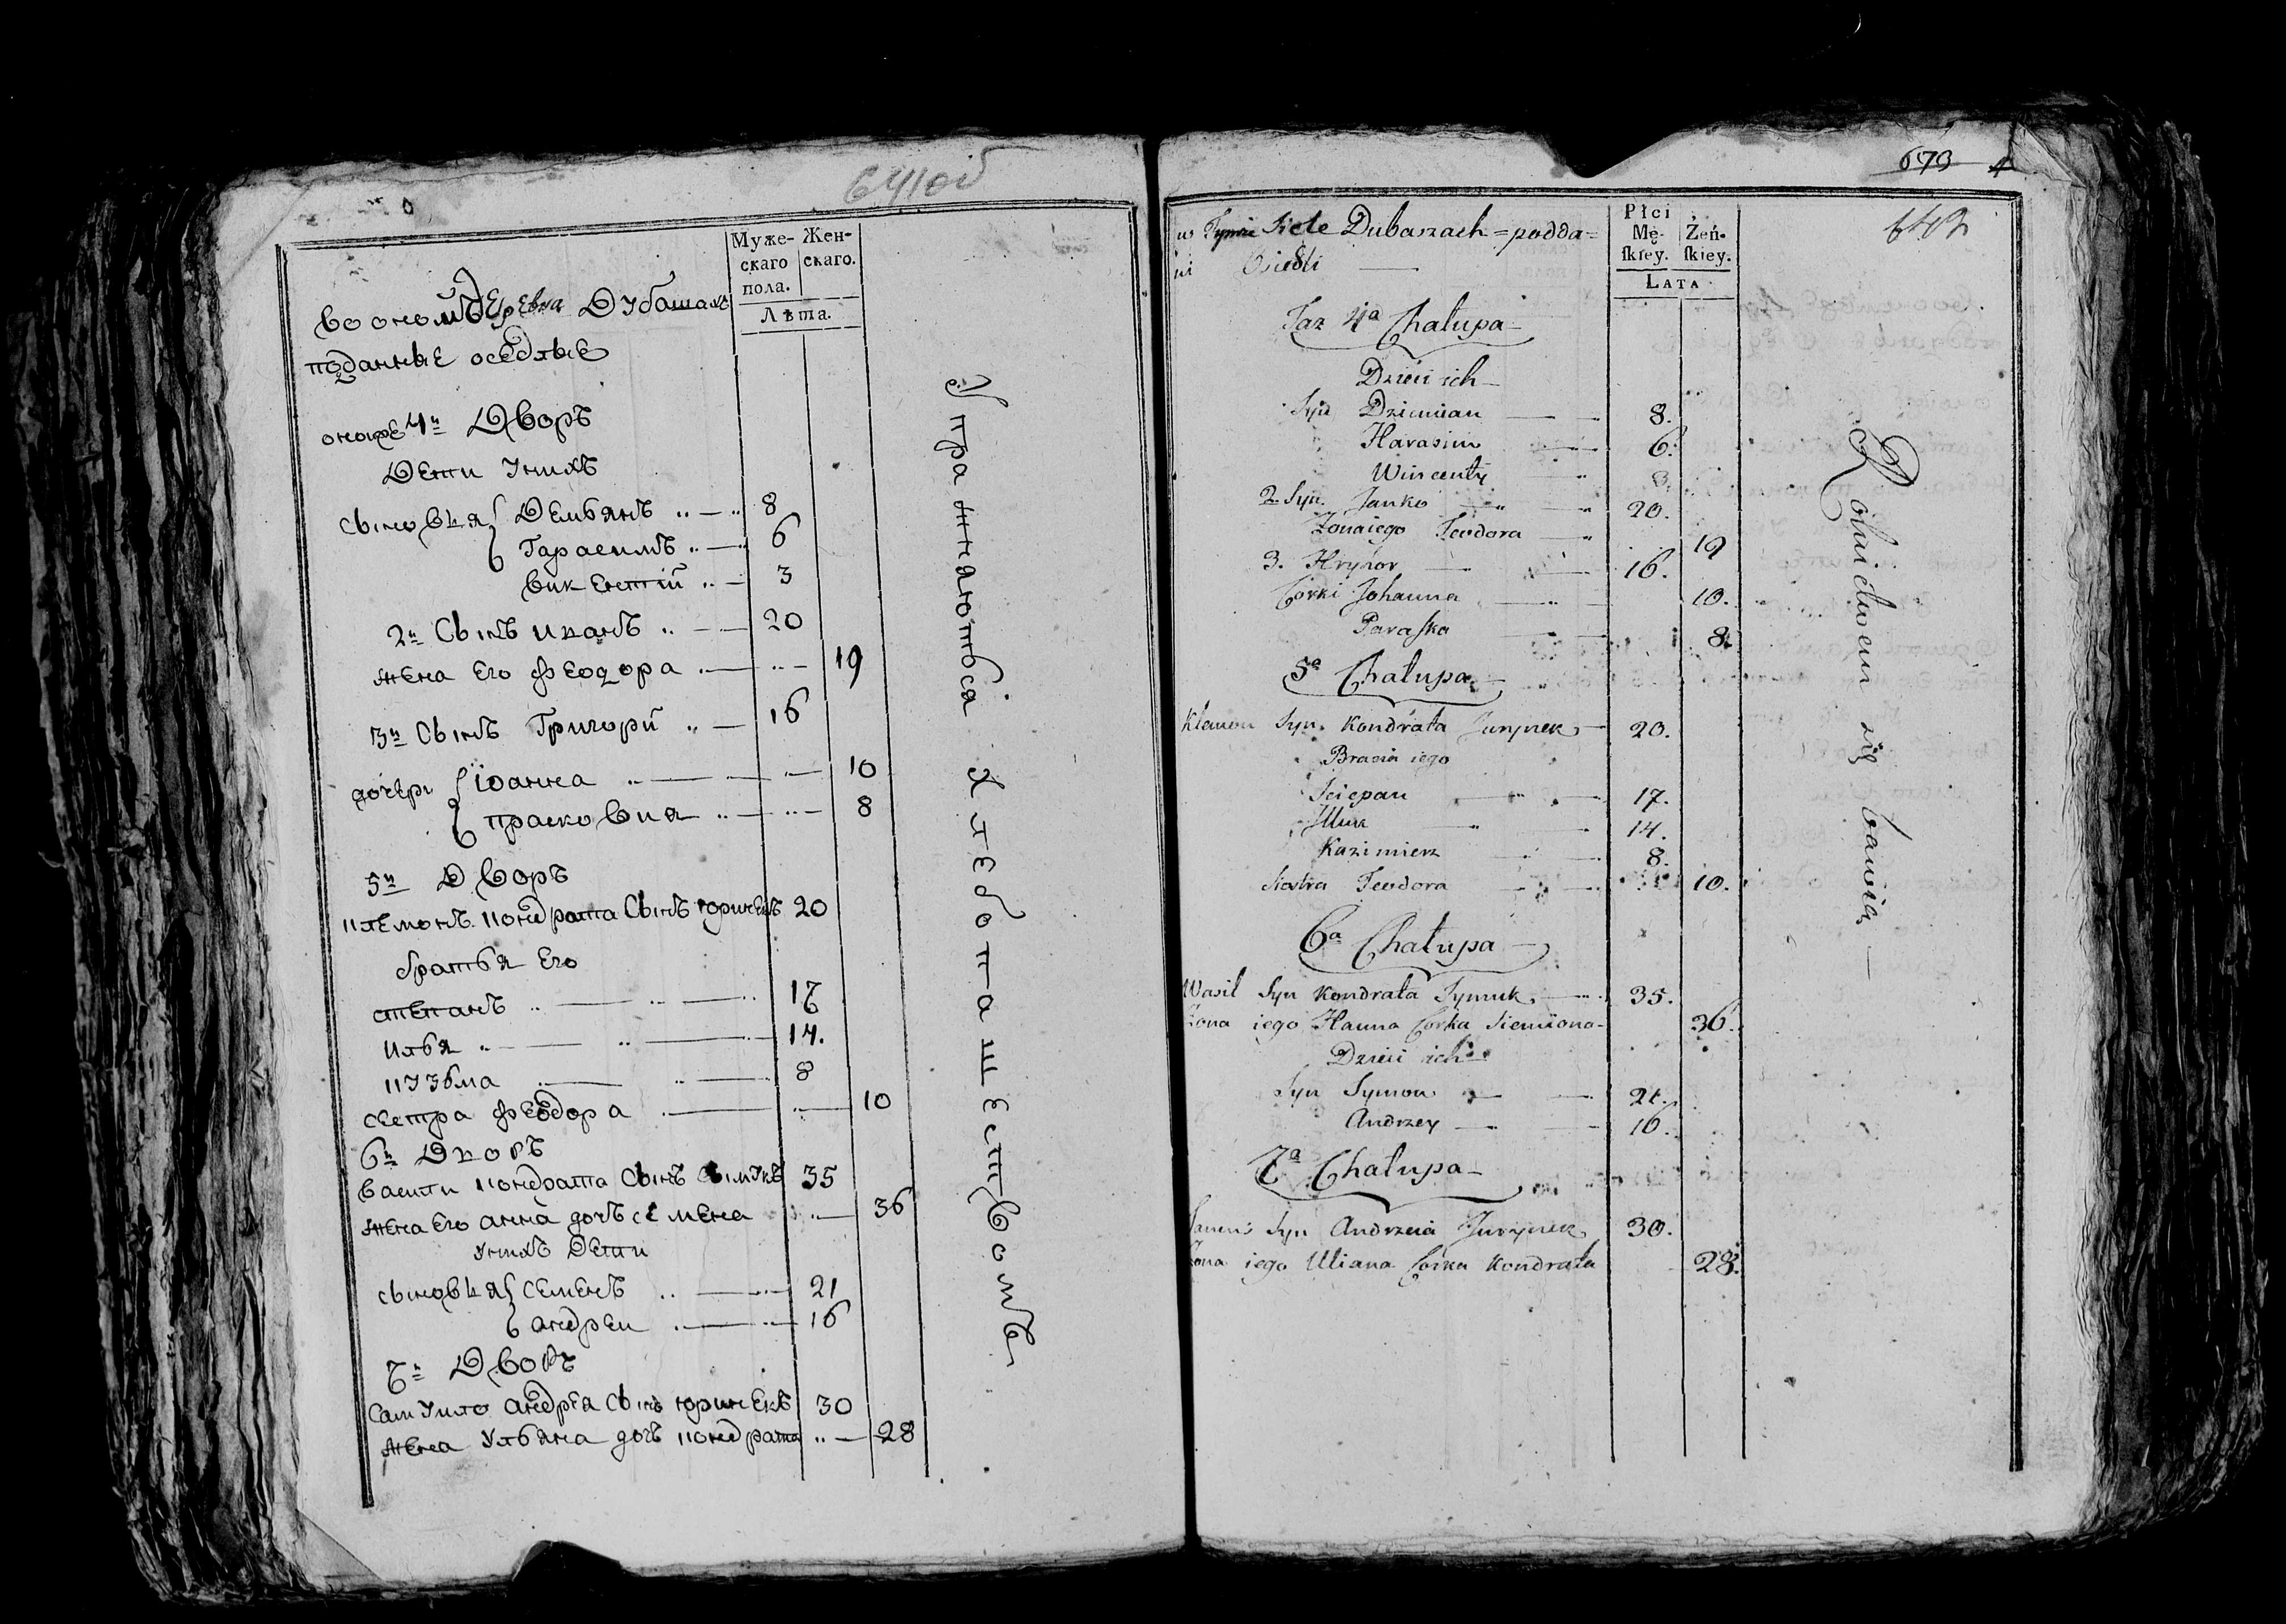 641об
Муже- Жен-
скаго скаго.
пола.
Лѣта.
Во ономъ деревна Дубашахъ
подданные оседлые
оногже 4й Дворъ
Дети унихъ
сыновья Демьянъ 8
Гарасимъ 6
Викентій 3
2й Сынъ иванъ 20
жена Его феодора 19
3й Сынъ Григори 16
дочери Іоанна 10
прасковия 8
5й Дворъ
клемонъ кондрата Сынъ юринекъ 20
братья Его
степанъ 17
илья 14.
кузьма 8
сестра феодора 10
6й Дворъ
васили кондрата Сынъ 35
жена Его анна дочь семена 36
унихъ Дети
сыновья семенъ 21
андреи 16
7й Дворъ
Самуило андрея Сынъ юринекъ 30
жена Ульяна дочь кондрата 28
Упражняютьса хлебопашествомъ
679
642
w Tymże Siele Dubaszach = podda=
ni Osiedli
Płci
Mę- Żeń-
skiey. skiey.
Lata
Taz 4a Chałupa
Dzieci ich
Syn Dziemian 8.
Harasim 6.
Wincenty 3
2. Syn. Janko 20.
Zona iego Teodora 19
3. Hryhor 16.
Corki Johanna 10.
Paraska 8.
5a Chałupa
Klamon Syn Kondrata Jurynek 20.
Bracia iego
Sciepan 17.
14.
Kazimierz 8.
Siostra Teodora 10.
6a Chałupa
Wasil Syn Kondrata Symuk 35.
Zona iego Hanna Corka Siemiona 36.
Dzieci ich
Syn Symon 21.
Andrzey 16.
7a Chałupa
Syn Andrzeia Jurynek 30.
Zona iego Uliana Corka Kondrata 28.
Rolnictwem się bawią